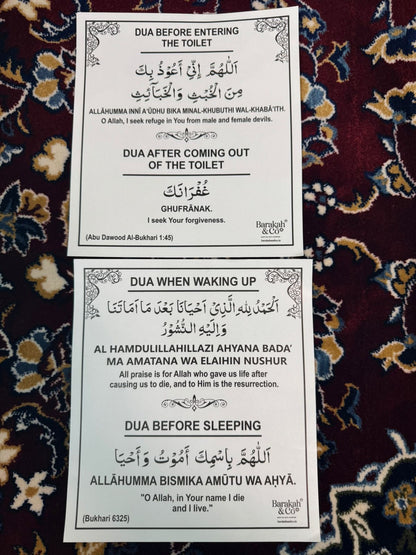 DUA BEFORE ENTERING
THE TOILET
اَللّٰهُمَّ إِنِّيْ أَعُوْذُ بِكَ
مِنَ الْخُبْثِ وَالْخَبَآئِثِ
ALLĀHUMMA INNĪ A'ŪDHU BIKA MINAL-KHUBUTHI WAL-KHABĀ'ITH.
O Allah, I seek refuge in You from male and female devils.
DUA AFTER COMING OUT
OF THE TOILET
غُفْرَانَكَ
GHUFRĀNAK.
I seek Your forgiveness.
(Abu Dawood Al-Bukhari 1:45)
Barakah
& Co
DUA WHEN WAKING UP
اَلْحَمْدُ لِلّٰهِ الَّذِيْ أَحْيَانَا بَعْدَ مَا أَمَاتَنَا
وَإِلَيْهِ النُّشُوْرُ
AL HAMDULILLAHILLAZI AHYANA BADA'
MA AMATANA WA ELAIHIN NUSHUR
All praise is for Allah who gave us life after
causing us to die, and to Him is the resurrection.
DUA BEFORE SLEEPING
اَللّٰهُمَّ بِاسْمِكَ أَمُوْتُ وَ أَحْيَا
ALLĀHUMMA BISMIKA AMŪTU WA AḤYĀ.
"O Allah, in Your name I die
and I live."
(Bukhari 6325)
Barakah
& Co